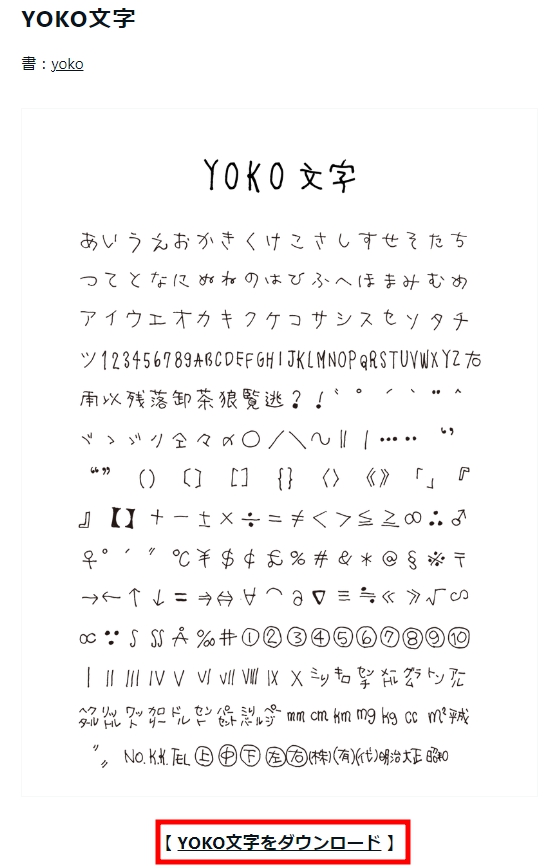 YOKO文字
書：yoko
YOKO 文字
あいうえおかきくけこさしすせそたち
つてとなにぬねのはひふへほまみむめ
アイウエオカキクケコサシスセソタチ
ツ123456789ABCDEFGHIJKLMNOPQRSTUVWXYZ右
雨以残落卸茶狼覧逃？！゛゜´｀¨＾
ヾゝゞ〃仝々〆〇／＼～∥｜…‥ ‘’
“” （） 〔〕 ［］ ｛｝ 〈〉 《》 「」 『
』【】＋－±×÷＝≠＜＞≦≧∞∴♂
♀°′″℃￥＄￠￡％＃＆＊＠§※〒
→←↑↓＝⇒⇔∀⌒∂∇≡≒≪≫√∽
∝∵∫∬Å‰♯①②③④⑤⑥⑦⑧⑨⑩
ⅠⅡⅢⅣⅤⅥⅦⅧⅨⅩ㍉㌔㌢㍍㌘㌧㌃
㌶㍑㍗㌍㌦㌣㌫㍊㌻mm cm km mg kg cc m²平成
〝〟No. K.K. TEL ㊤㊥㊦㊧㊨(株)(有)(代)明治大正昭和
【 YOKO文字をダウンロード 】